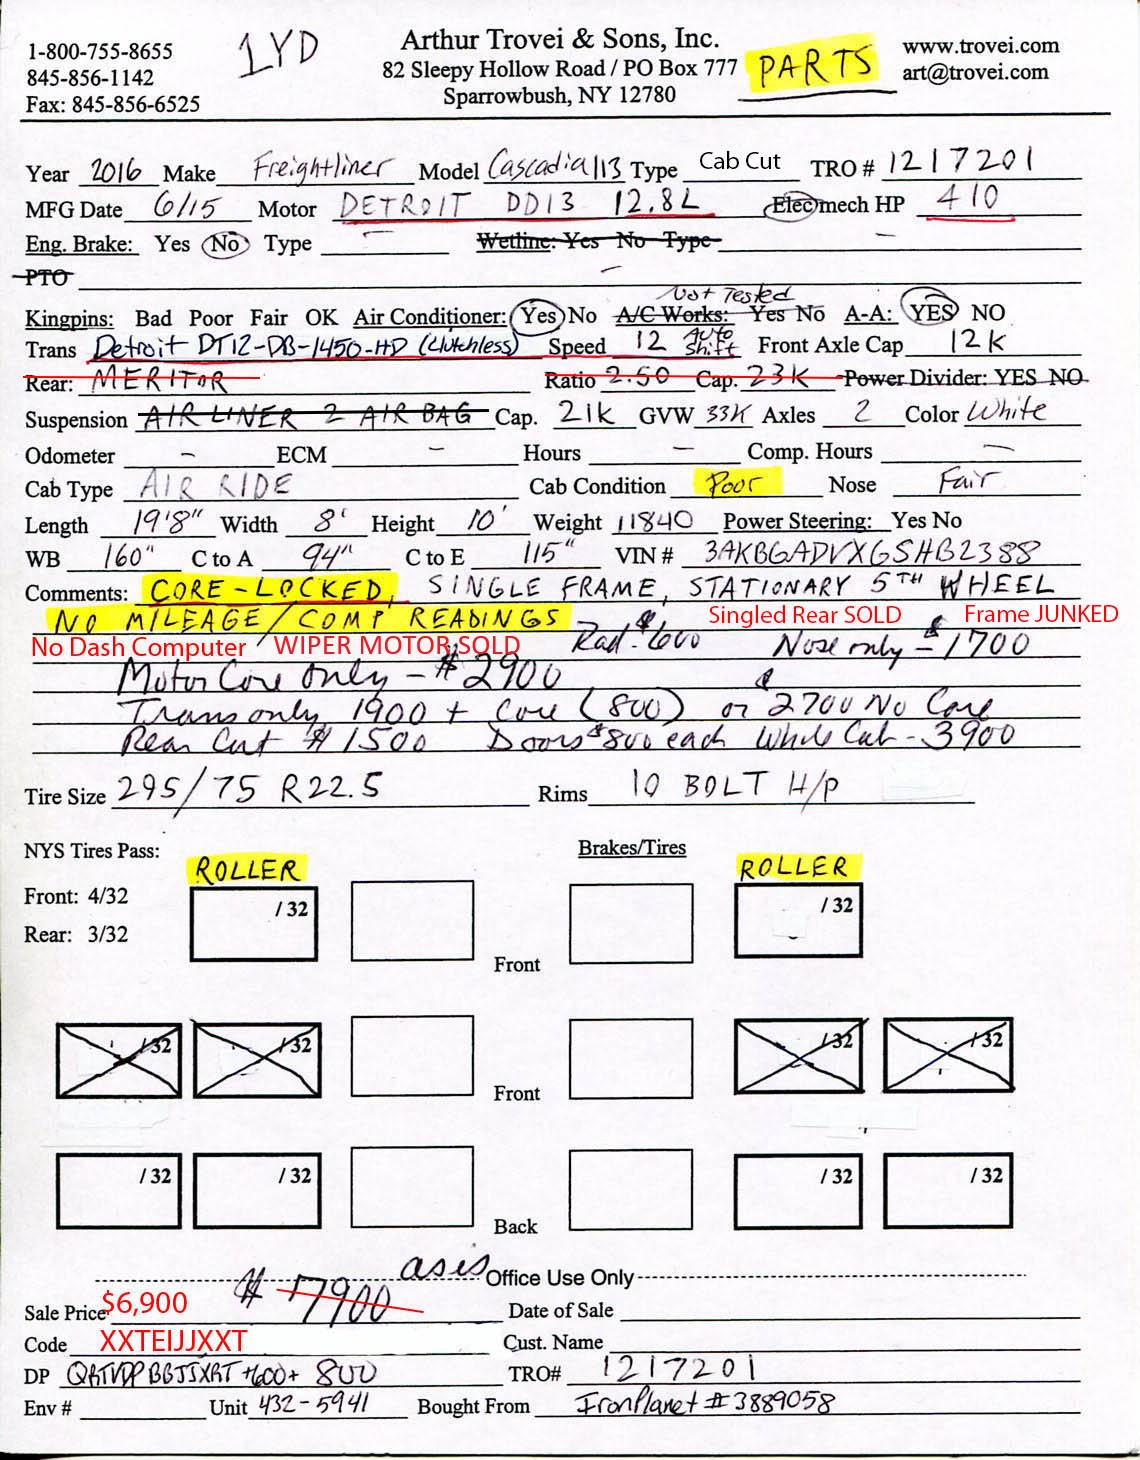 1-800-755-8655
845-856-1142
Fax: 845-856-6525
1YD
Arthur Trovei & Sons, Inc.
82 Sleepy Hollow Road / PO Box 777
Sparrowbush, NY 12780
PARTS
www.trovei.com
art@trovei.com
Year 2016 Make Freightliner Model Cascadia 113 Type Cab Cut TRO # 1217201
MFG Date 6/15 Motor DETROIT DD13 12.8L Elec mech HP 410
Eng. Brake: Yes No Type - Wetline: Yes No Type -
PTO -
Not Tested
Kingpins: Bad Poor Fair OK Air Conditioner: Yes No A/C Works: Yes No A-A: YES NO
Trans Detroit DT12-DB-1450-HD (Clutchless) Speed 12 Auto Shift Front Axle Cap 12K
Rear: MERITOR Ratio 2.50 Cap. 23K Power Divider: YES NO
Suspension AIR LINER 2 AIR BAG Cap. 21K GVW 33K Axles 2 Color White
Odometer - ECM - Hours - Comp. Hours -
Cab Type AIR RIDE Cab Condition Poor Nose Fair
Length 19'8" Width 8' Height 10' Weight 11840 Power Steering: Yes No
WB 160" C to A 94" C to E 115" VIN # 3AKBGADVXGSHB2388
Comments: CORE-LOCKED, SINGLE FRAME, STATIONARY 5TH WHEEL
NO MILEAGE/COMP READINGS Singled Rear SOLD Frame JUNKED
No Dash Computer WIPER MOTOR SOLD Rad - $600 Nose only - $1700
Motor Core Only - $2900
Trans only 1900 + Core (800) or $2700 No Core
Rear Cut $1500 Doors $800 each Whole Cab - 3900
Tire Size 295/75 R22.5 Rims 10 BOLT H/P
NYS Tires Pass:
Front: 4/32
Rear: 3/32
ROLLER
Brakes/Tires
ROLLER
/ 32
/ 32
Front
/ 32
/ 32
/ 32
/ 32
Front
/ 32
/ 32
/ 32
/ 32
Back
as is
Office Use Only
Sale Price $6,900 $7900 Date of Sale
Code XXTEIJJXXT Cust. Name
DP +600+ 800 TRO# 1217201
Env # Unit 432-5941 Bought From IronPlanet # 3889058